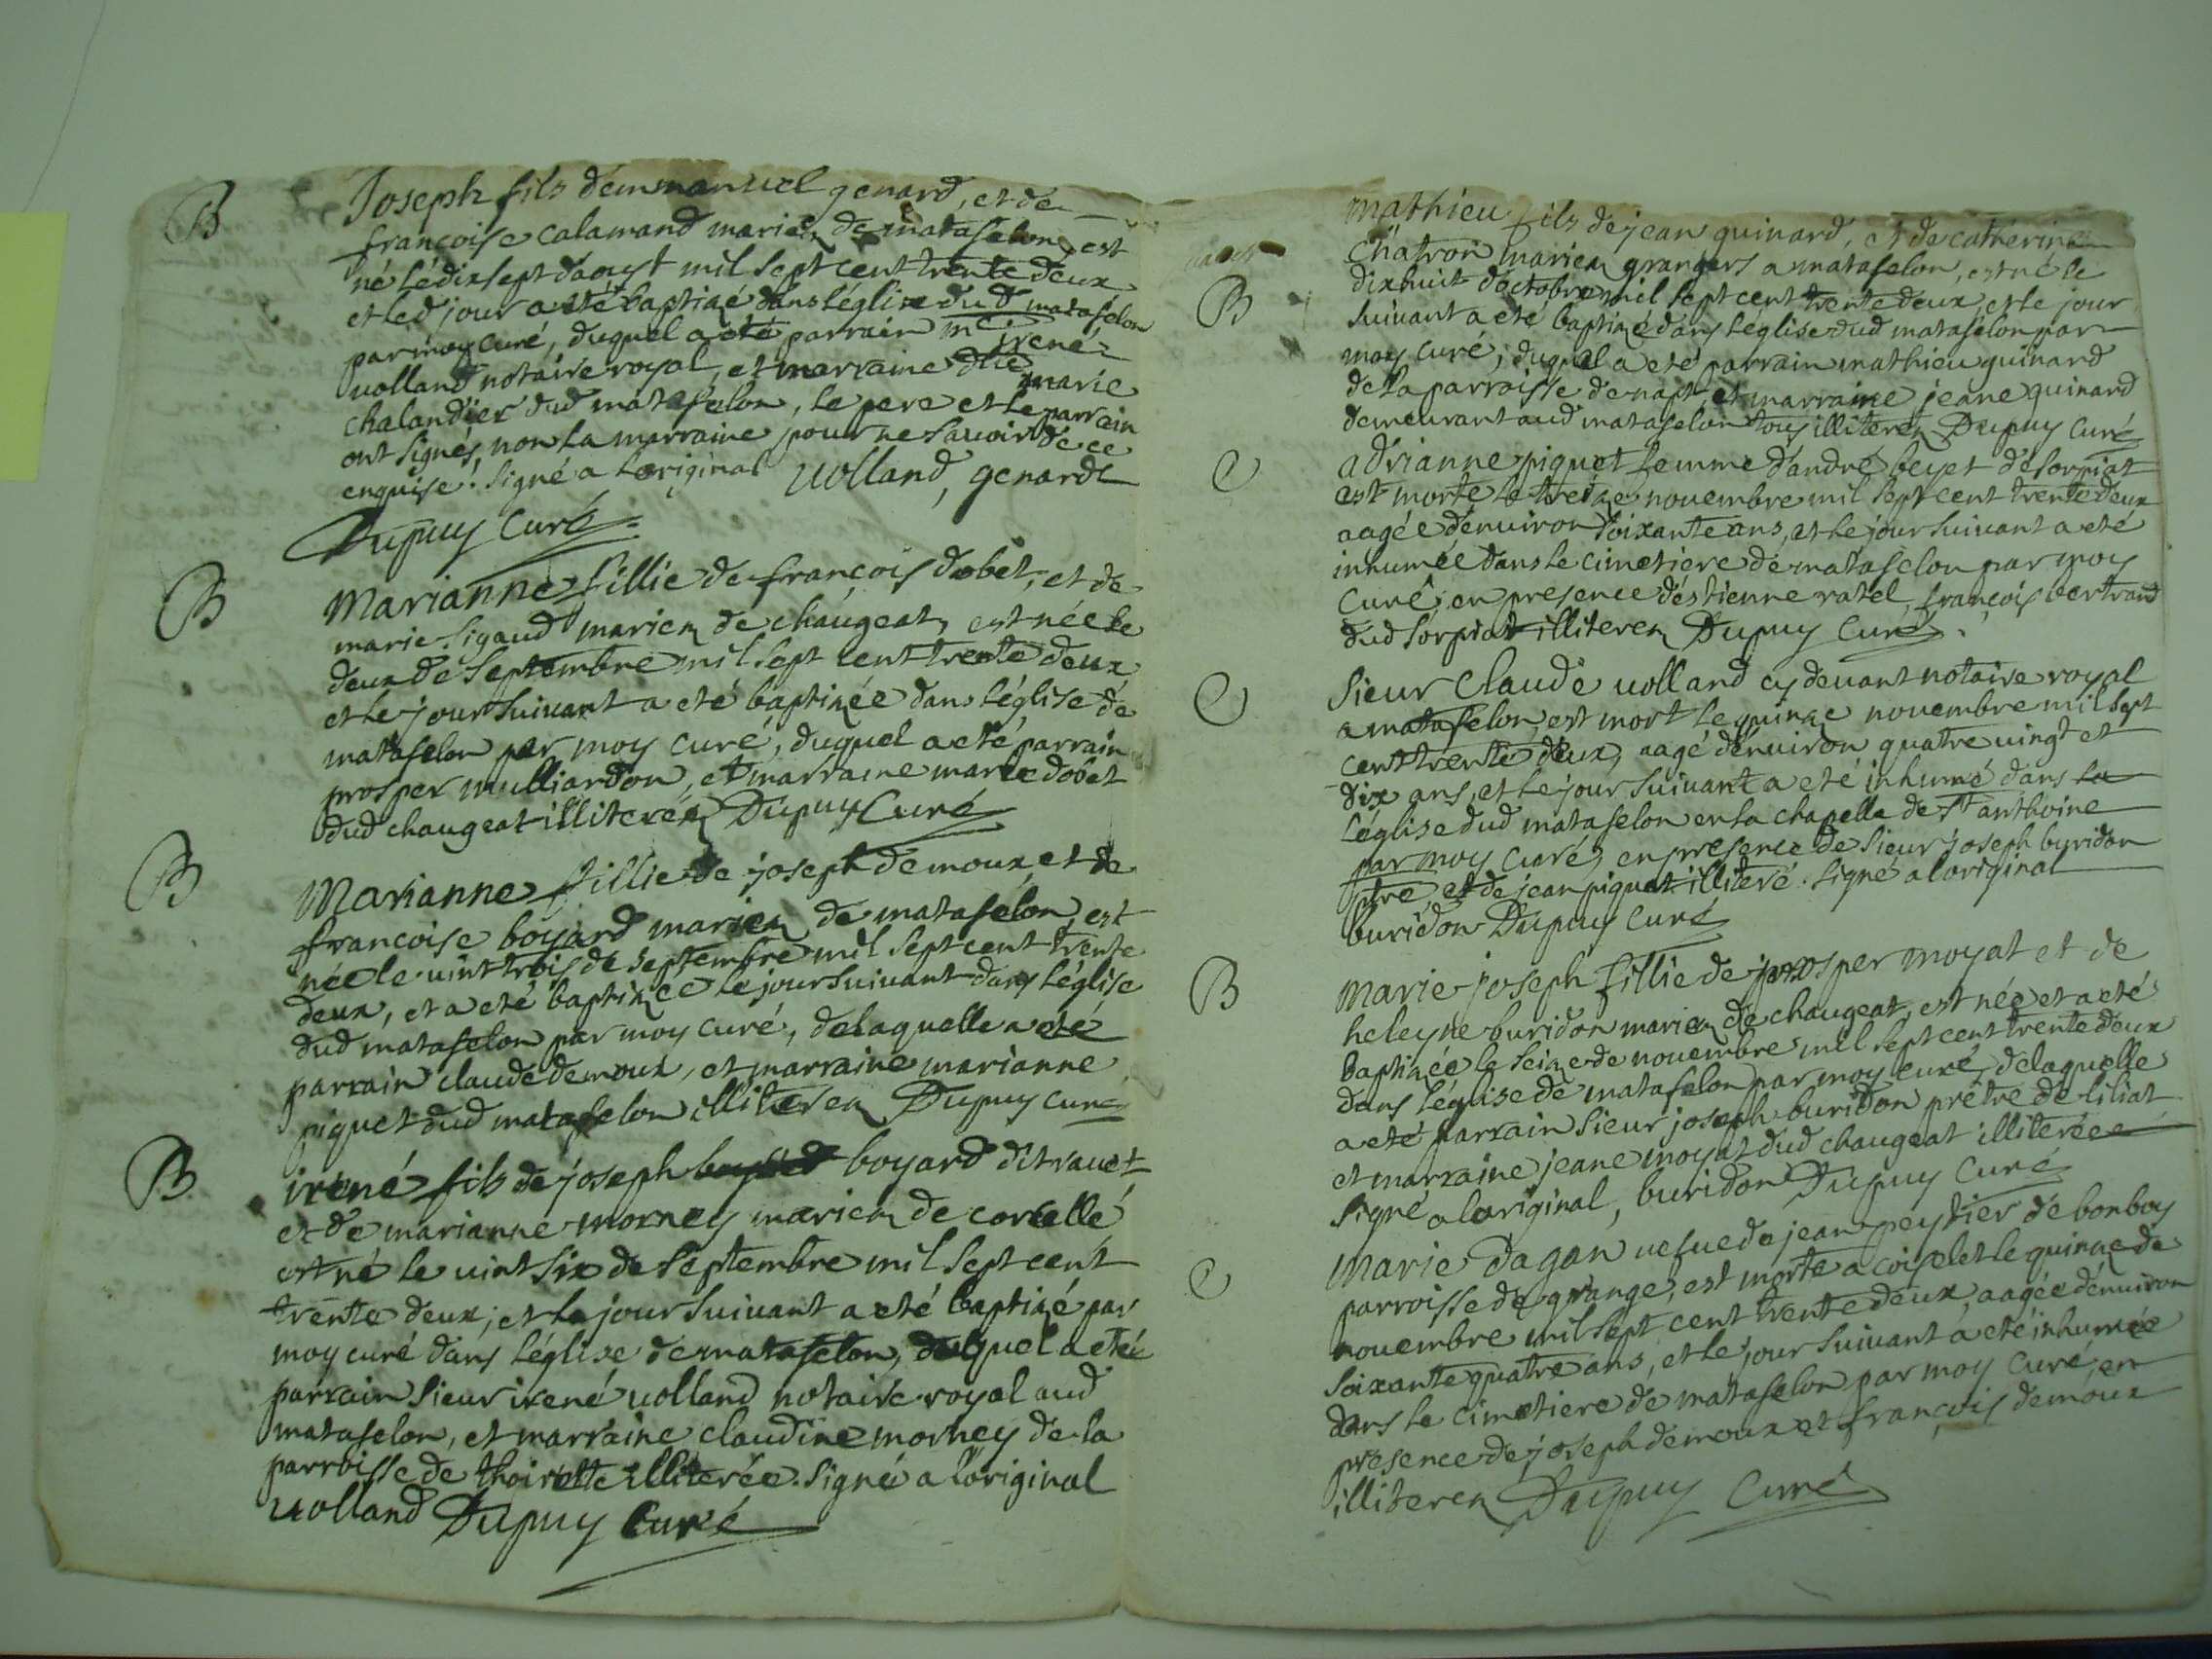 B
Joseph fils démmanuel genard, et de
françoise calamand mariez de mataselon, est
né le dixsept daoust mil sept cent trente deux
et led jour a eté baptizé dans léglize dud mataselon
par moy curé, duquel a eté parrain me irené
volland notaire royal, et marraine dlle marie
chalandier dud mataselon, le pere et le parrain
ont signés, non la marraine pour ne sauoir de ce
enquise. signé a loriginal volland, genard
Dupuy Curé
B
Marianne fillie de françois dobet, et de
marie sigaud mariez de chaugeat, est née le
deux de septembre mil sept cent trente deux
et le jour suivant a eté baptizée dans léglise de
mataselon par moy curé, duquel a eté parrain
prosper mulliardon, et marraine marie dobet
dud chaugeat illiterez Dupuy Curé
B
Marianne fillie de joseph demoux, et de
francoise boyard mariez de mataselon, est
née le vint trois de septembre mil sept cent trente
deux, et a eté baptizée le jour suivant dans léglise
dud mataselon par moy curé, delaquelle a eté
parrain claude demoux, et marraine marianne
piquet dud mataselon illiterez Dupuy curé
B
irené fils de joseph boyard dit
et de marianne morney mariez de corcelle
est né le vint six de septembre mil sept cent
trente deux, et le jour suivant a eté baptizé par
moy curé dans léglise de mataselon, duquel a eté
parrain sieur irené volland notaire royal aud
mataselon, et marraine claudine morney de la
parroisse de thoirette illiterée. signé a loriginal
volland Dupuy Curé
mathieu fils de jean guinard, et de catherine
chatron mariez grangers a mataselon, est né le
B
dixhuit doctobre mil sept cent trente deux, et le jour
suivant a eté baptizé dans léglise dud mataselon par
moy curé, duquel a eté parrain mathieu guinard
de la parroisse de napt, et marraine jeane guinard
demeurant aud mataselon tous illiterez Dupuy Curé
C
adrianne piquet femme dandré beyet de sorpiat
est morte le treize novembre mil sept cent trente deux
aagée dénviron soixante ans, et le jour suivant a eté
inhumée dans le cimetiere de mataselon par moy
Curé, en presence déstienne ratel, françois bertrand
dud sorpiat illiterez Dupuy Curé
C
Sieur Claude volland cy devant notaire royal
a mataselon, est mort le quinze novembre mil sept
cent trente deux, aagé dénviron quatre vingt et
dix ans, et le jour suivant a eté inhumé dans la
léglise dud mataselon en la chapelle de st anthoine
par moy curé, en presence de sieur joseph buridon
ptre, et de jean piquet illiteré. signé a loriginal
buridon Dupuy Curé
B
Marie joseph fillie de prosper moyat et de
heleyne buridon mariez de chaugeat, est née et a eté
baptizée le seize de novembre mil sept cent trente deux
dans léglise de mataselon par moy curé, delaquelle
a eté parrain sieur joseph buridon prétre de siliat
et marraine jeane moyat dud chaugeat illiterée
signé a loriginal, buridon Dupuy Curé
C
Marie dagan vefue de jean peytier de bonboy
parroisse de grange, est morte a coiselet le quinze de
novembre mil sept cent trente deux, aagée dénviron
soixante quatre ans, et le jour suivant a eté inhumée
dans le cimetiere de mataselon par moy curé, en
presence de joseph demoux et françois demoux
illiterez Dupuy Curé